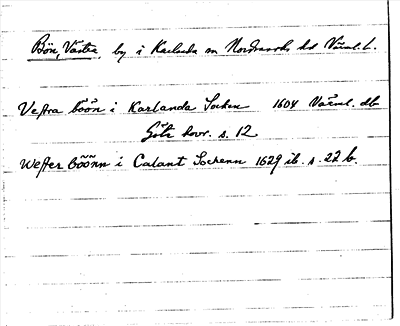 Bön, Västra, by i Karlanda sn Nordmarks hd Värml. l.
Vestra böön i Karlanda Socken 1604 Värml. db
Göta hovr. s. 12
Wester böönn i Calant Sochenn 1629 ib. s. 22 b.